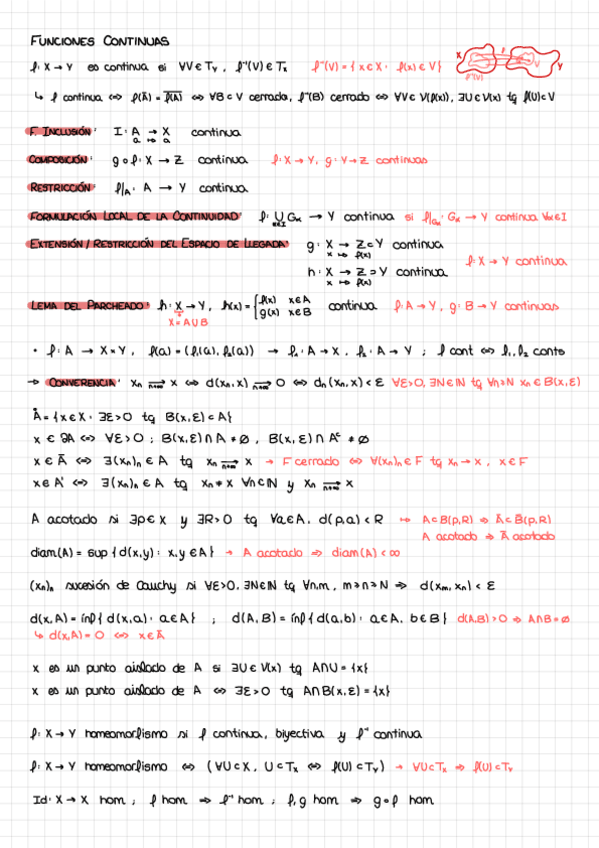 FUNCIONES CONTINUAS
f: X → Y es continua si ∀V ∈ T_Y, f⁻¹(V) ∈ T_X f⁻¹(V) = {x ∈ X : f(x) ∈ V}
X f Y V f⁻¹(V)
↳ f continua ⇔ f(Ā) ⊂ \overline{f(A)} ⇔ ∀B ⊂ Y cerrado, f⁻¹(B) cerrado ⇔ ∀V ∈ V(f(x)), ∃U ∈ V(x) tq f(U) ⊂ V
F. INCLUSIÓN: I: A → X continua
a ↦ a
COMPOSICIÓN: g∘f: X → Z continua f: X → Y, g: Y → Z continuas
RESTRICCIÓN: f|_A: A → Y continua
FORMULACIÓN LOCAL DE LA CONTINUIDAD: f: ∪_{α∈I} G_α → Y continua si f|_{Gα}: G_α → Y continua ∀α ∈ I
EXTENSIÓN / RESTRICCIÓN DEL ESPACIO DE LLEGADA: g: X → Z ⊂ Y continua
x ↦ f(x)
f: X → Y continua
h: X → Z ⊃ Y continua
x ↦ f(x)
LEMA DEL PARCHEADO: h: X → Y, h(x) = { f(x) x∈A
g(x) x∈B continua f: A → Y, g: B → Y continuas
X = A∪B
• f: A → X × Y, f(a) = (f₁(a), f₂(a)) → f₁: A → X, f₂: A → Y ; f cont ⇔ f₁, f₂ conts
→ CONVERENCIA: x_n →_{n→∞} x ⇔ d(x_n, x) →_{n→∞} 0 ⇔ d_n(x_n, x) < ε ∀ε>0, ∃N∈ℕ tq ∀n≥N x_n ∈ B(x, ε)
Å = {x ∈ X : ∃ε>0 tq B(x, ε) ⊂ A}
x ∈ ∂A ⇔ ∀ε>0 ; B(x, ε) ∩ A ≠ ∅, B(x, ε) ∩ Aᶜ ≠ ∅
x ∈ Ā ⇔ ∃(x_n)_n ∈ A tq x_n →_{n→∞} x → F cerrado ⇔ ∀(x_n)_n ∈ F tq x_n → x, x ∈ F
x ∈ A' ⇔ ∃(x_n)_n ∈ A tq x_n ≠ x ∀n∈ℕ y x_n →_{n→∞} x
A acotado si ∃p ∈ X y ∃R>0 tq ∀a∈A, d(p,a) < R ↦ A ⊂ B(p,R) ⇒ Ā ⊂ B̄(p,R)
A acotado ⇒ Ā acotado
diam(A) = sup {d(x,y) : x,y ∈ A} → A acotado ⇒ diam(A) < ∞
(x_n)_n sucesión de Cauchy si ∀ε>0, ∃N∈ℕ tq ∀n,m, m≥n≥N ⇒ d(x_m, x_n) < ε
d(x,A) = ínf {d(x,a) : a ∈ A} ; d(A,B) = ínf {d(a,b) : a ∈ A, b ∈ B} d(A,B) > 0 ⇒ A∩B = ∅
↳ d(x,A) = 0 ⇔ x ∈ Ā
x es un punto aislado de A si ∃U ∈ V(x) tq A∩U = {x}
x es un punto aislado de A ⇔ ∃ε>0 tq A∩B(x, ε) = {x}
f: X → Y homeomorfismo si f continua, biyectiva y f⁻¹ continua
f: X → Y homeomorfismo ⇔ (∀U⊂X, U⊂T_X ⇔ f(U)⊂T_Y) → ∀U⊂T_X ⇒ f(U)⊂T_Y
Id: X → X hom ; f hom ⇒ f⁻¹ hom ; f, g hom ⇒ g∘f hom